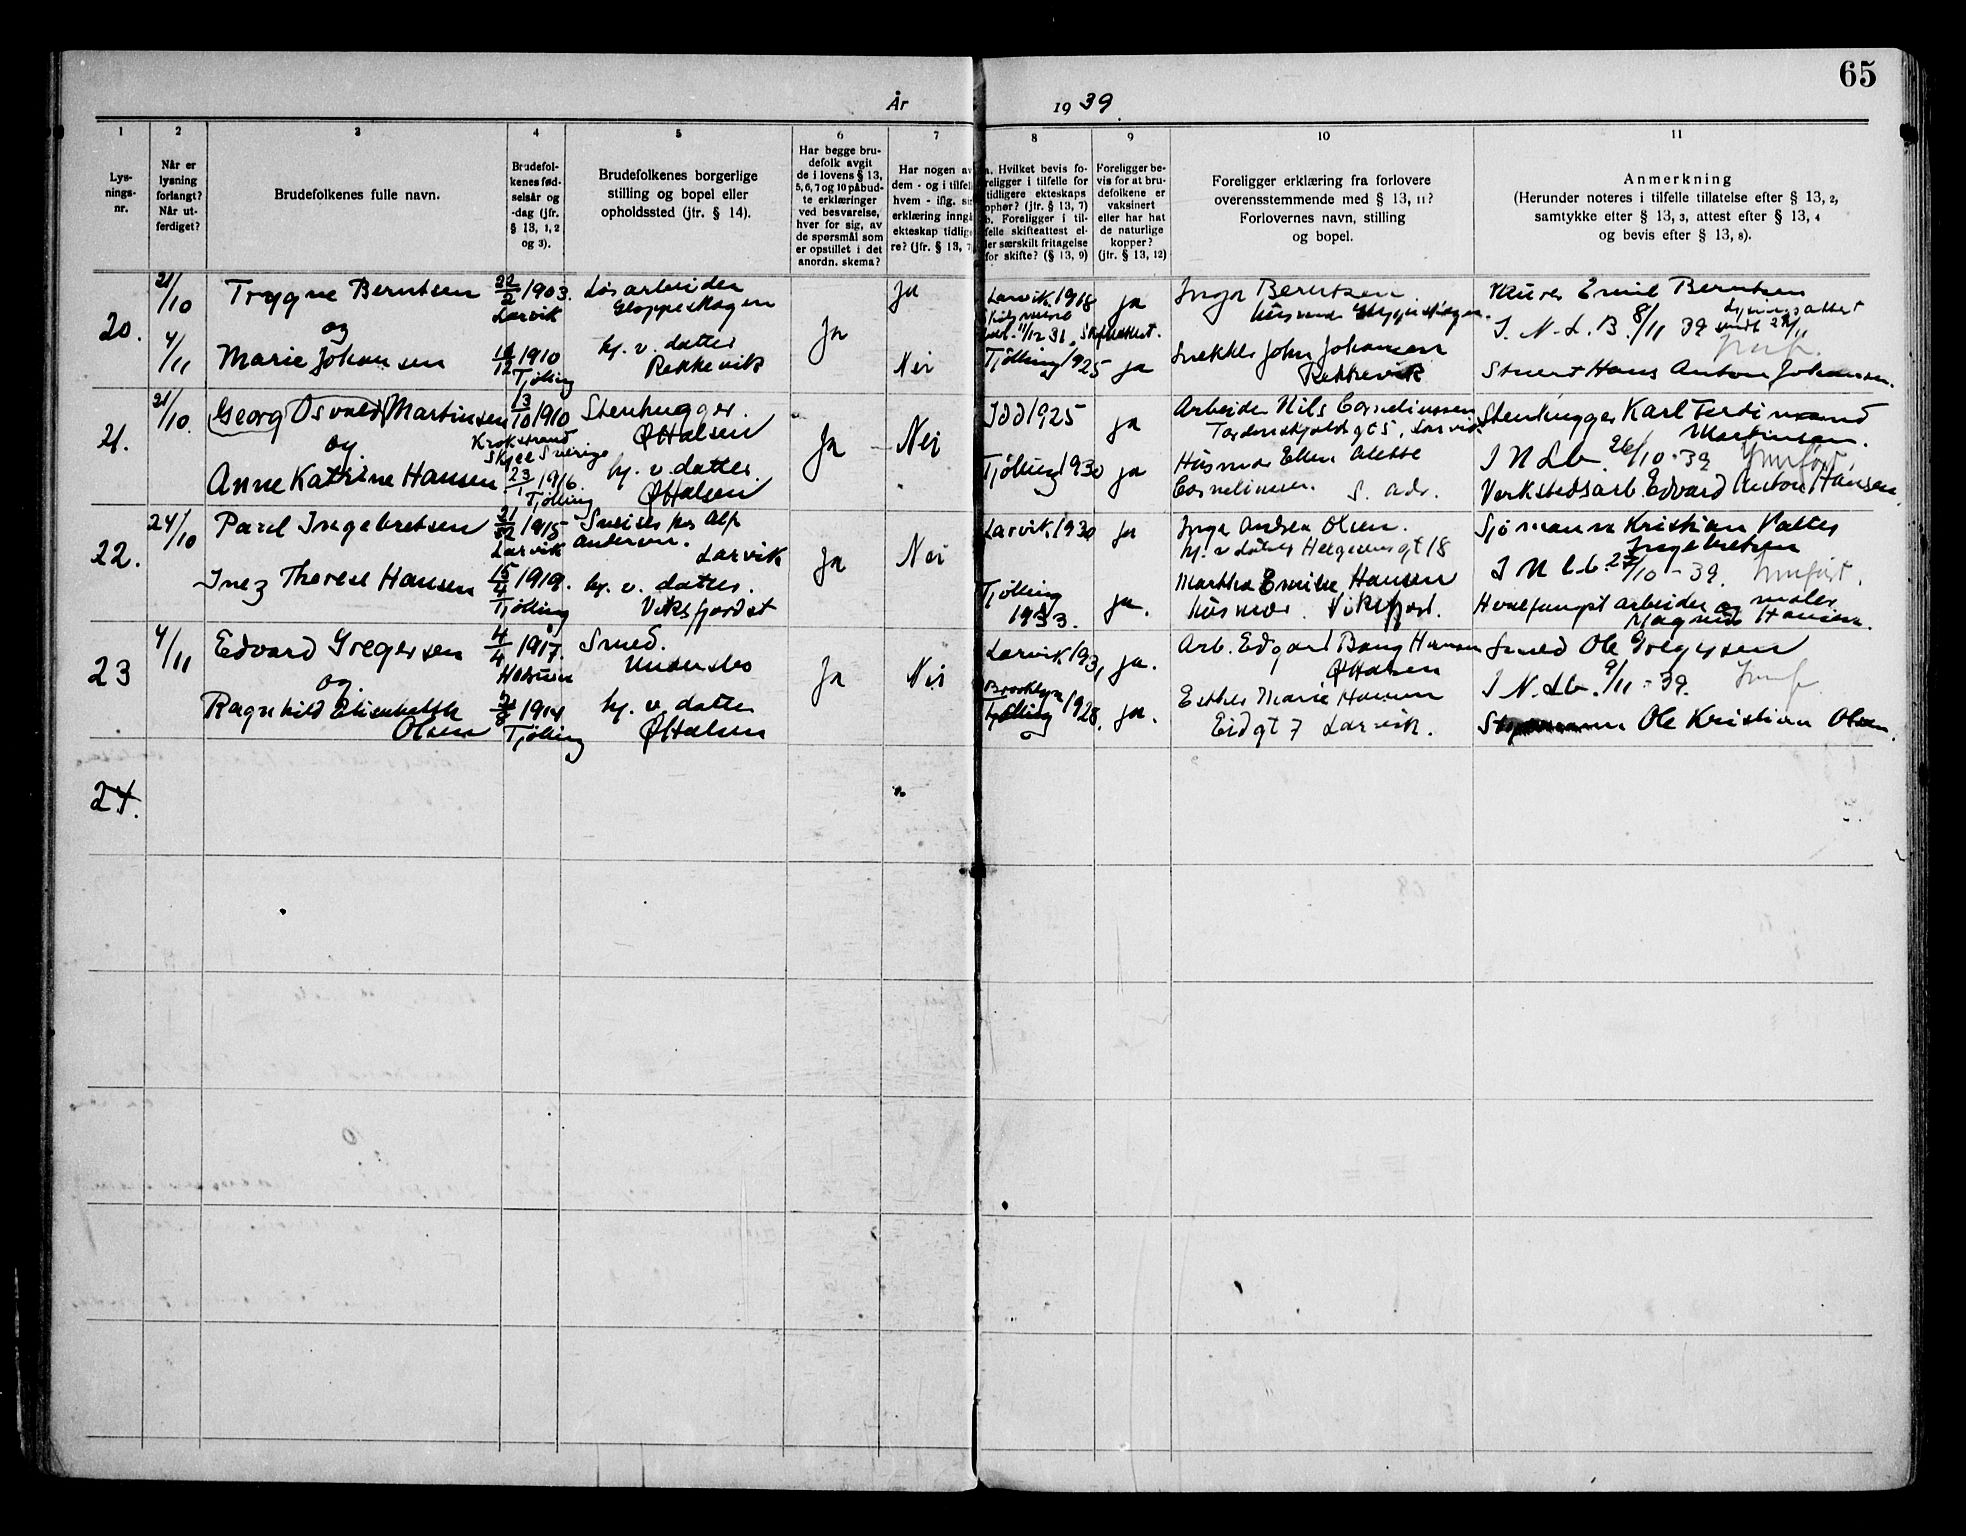 65
År 1939.
1 2 3 4 5 6 7 8 9 10 11
Lys-
nings-
nr.
Når er
lysning
forlangt?
Når ut-
ferdiget?
Brudefolkenes fulle navn.
Brudefol-
kenes fød-
selsår og
-dag (jfr.
§ 13, 1, 2
og 3).
Brudefolkenes borgerlige
stilling og bopel eller
opholdssted (jfr. § 14).
Har begge bru-
defolk avgit
de i lovens § 13,
5, 6, 7 og 10 påbud-
te erklæringer
ved besvarelse,
hver for sig, av
de spørsmål som
er opstillet i det
anordn. skema?
Har nogen av
dem - og i tilfelle
hvem - iflg. sin
erklæring inngått
ekteskap tidlige-
re? (jfr. § 13, 7
a. Hvilket bevis fo-
religger i tilfelle for
tidligere ekteskaps
ophør? (jfr. § 13, 7)
b. Foreligger i til-
felle skifteattest el-
ler særskilt fritagelse
for skifte? (§ 13, 9)
Foreligger be-
vis for at bru-
defolkene er
vaksinert
eller har hat
de naturlige
kopper?
(jfr. § 13, 12)
Foreligger erklæring fra forlovere
overensstemmende med § 13, 11?
Forlovernes navn, stilling
og bopel.
Anmerkning
(Herunder noteres i tilfelle tillatelse efter § 13, 2,
samtykke efter § 13, 3, attest efter § 13, 4
og bevis efter § 13, 8).
20.
21/10
4/11
Trygve Berntsen
og
Marie Johansen
22/2 1903.
Larvik
1910
Tjølling
Løsarbeider
Gloppeskogen
hj. v. datter
Rekkevik
Ja
Ja
Nei
Larvik 1918
Tjølling 1925
ja
ja
Inga Berntsen.
Snekker John Johansen
Rekkevik
Murer Emil Berntsen
I. N. L. B. 8/11 39
Stuert Hans Anton Johansen.
21.
21/10.
Georg Osvald Martinsen
og
Anne Katrine Hansen
13/10 1910
Krokstrand
Skjee Sverige
23/1 1916.
Tjølling
Stenhugger.
Ø Halsen
hj. v. datter.
Ø Halsen
Ja
Nei
Idd 1925
Tjølling 1930
ja
ja
Arbeider Nils Corneliussen
Tordenskjolds gt 5, Larvik
Husmor Ellen Alette
Corneliussen. s. adr.
Stenhugger Karl Ferdinand
Martinsen.
I N Lb. 26/10 - 39 Innført
Verkstedsarb. Edvard Anton Hansen
22.
24/10
Paul Ingebretsen
Inez Therese Hansen
21/12 1915
Larvik
15/4 1919.
Tjølling
Andersen.
Larvik
hj. v. datter.
Viksfjordet
Ja
Nei
Larvik 1930
Tjølling
1933.
ja
ja.
Inga Andrea Olsen.
Martha Emilie Hansen
Husmor. Viksfjord.
Sjømann Kristian Valter
Ingebretsen
I N L b. 27/10 - 39. Innført.
Hvalfangstarbeider og maler
Magnus Hansen.
23
4/11
Edvard Gregersen
og
Ragnhild Elisabeth
Olsen
4/4 1917.
1914
Tjølling
Smed.
Undersbo
hj. v. datter
Ø Halsen
Ja
Nei
Larvik 1931
Brooklyn
Tjølling 1928.
ja.
ja.
Arb. Edgard Bang Hansen
Ø Halsen
Esther Marie Hansen
Eidgt 7 Larvik.
Smed Ole Gregersen
I N. Lb. 9/11 - 39. Innf
Ole Kristian Olsen.
24.